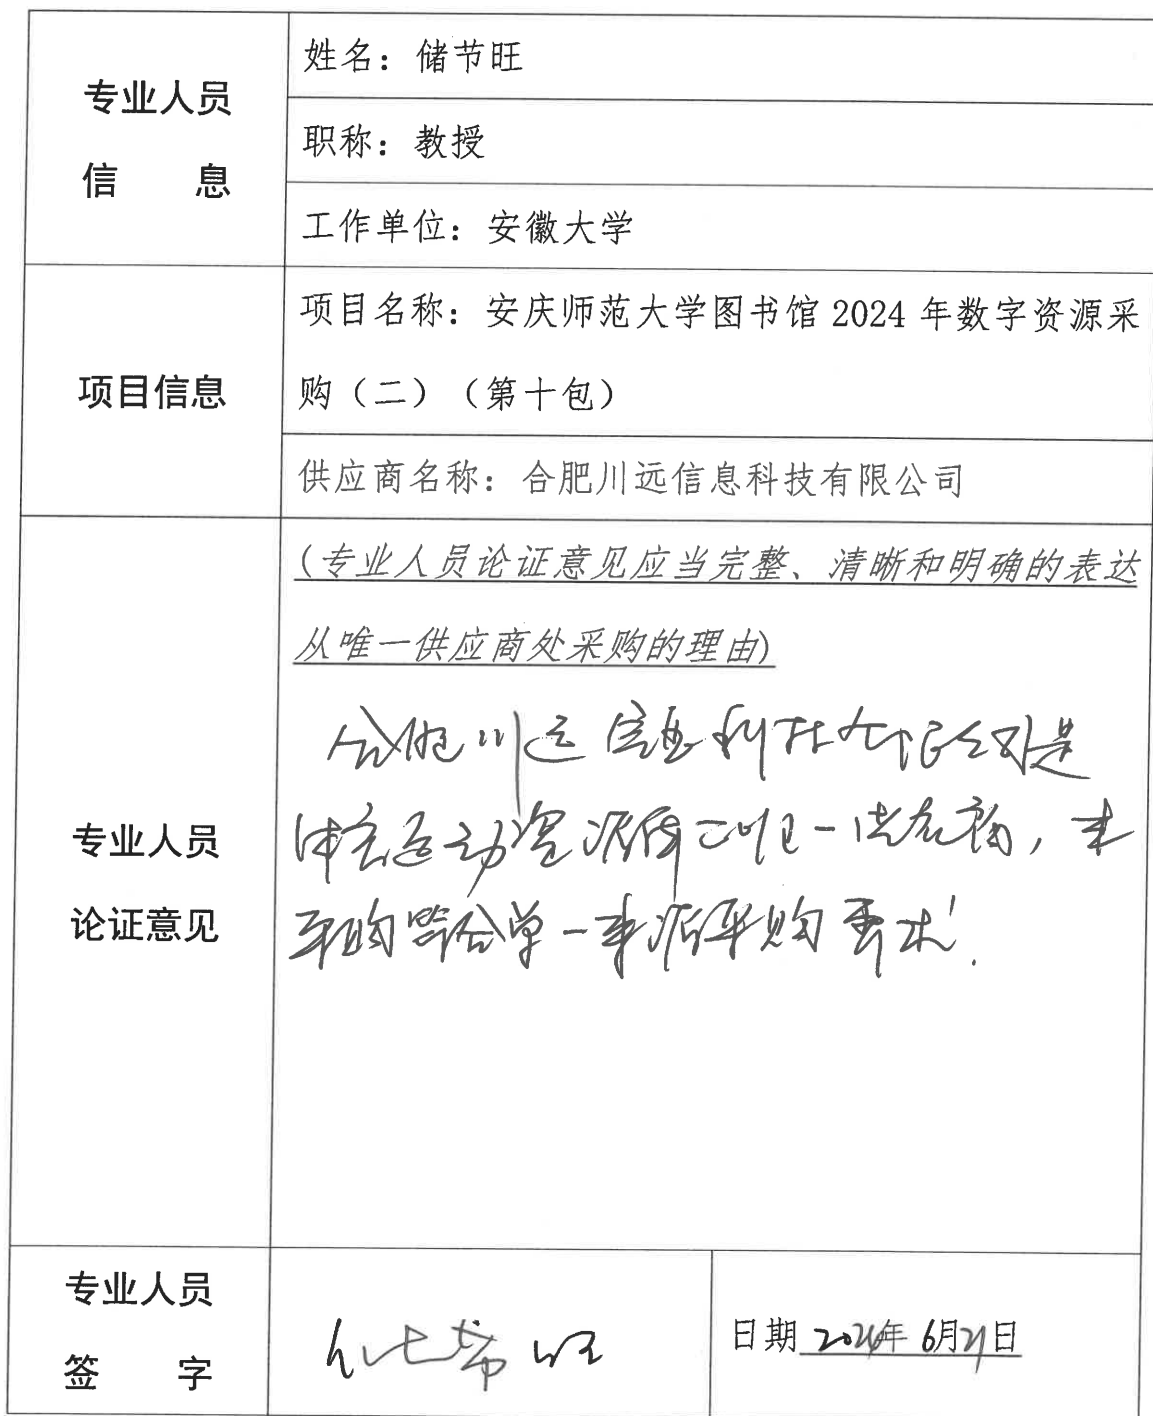 专业人员
信 息
姓名：储节旺
职称：教授
工作单位：安徽大学
项目信息
项目名称：安庆师范大学图书馆 2024 年数字资源采
购（二）（第十包）
供应商名称：合肥川远信息科技有限公司
专业人员
论证意见
(专业人员论证意见应当完整、清晰和明确的表达
从唯一供应商处采购的理由)
合肥川远信息科技有限公司是
体育运动资源库唯一供应商，
符合单一来源采购要求！
专业人员
签 字
储节旺
日期 2024年 6月21日